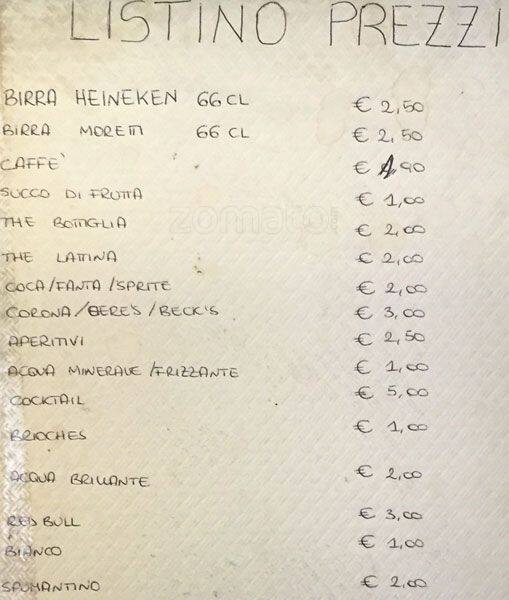 LISTINO PREZZI
BIRRA HEINEKEN 66 CL € 2,50
BIRRA MORETTI 66 CL € 2,50
CAFFE' € 1,90
SUCCO DI FRUTTA € 1,00
THE BOTTIGLIA € 2,00
zomato
THE LATTINA € 2,00
COCA/FANTA/SPRITE € 2,00
CORONA/CERE'S/BECK'S € 3,00
APERITIVI € 2,50
ACQUA MINERALE/FRIZZANTE € 1,00
COCKTAIL € 5,00
BRIOCHES € 1,00
ACQUA BRILLANTE € 2,00
RED BULL € 3,00
BIANCO € 1,00
SPUMANTINO € 2,00